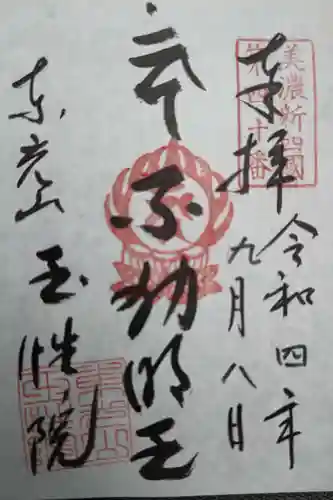 美濃新四國
第四十番
奉拝
令和四年
九月八日
本不動明王
東光山
玉性院